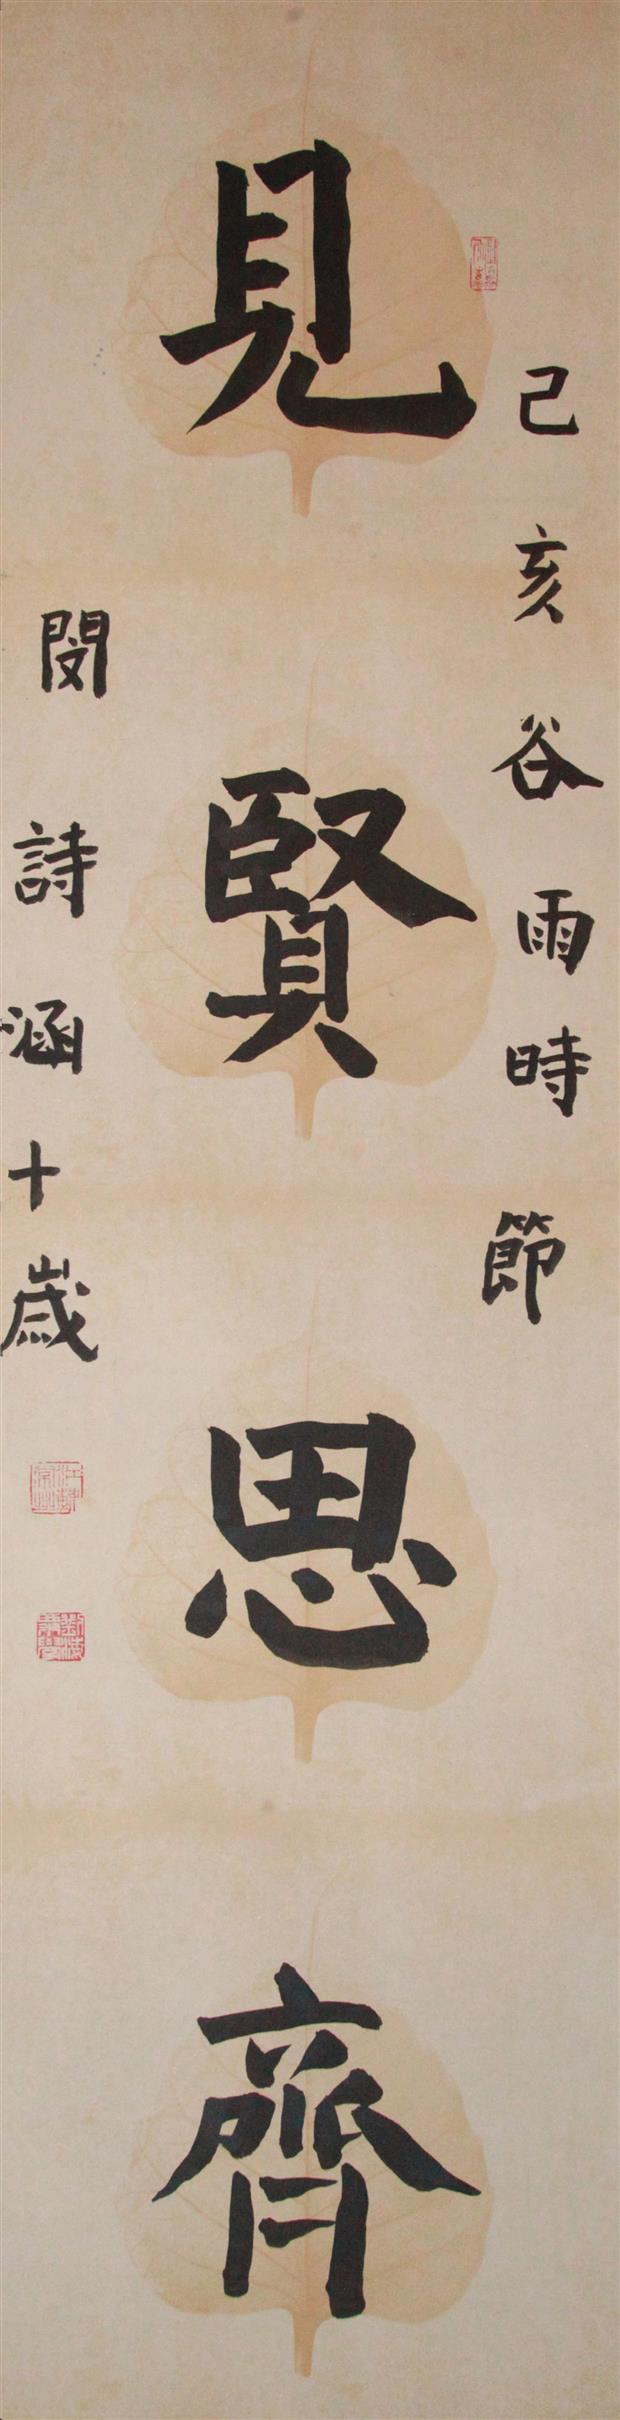 己亥谷雨時節
見賢思齊
閔詩涵十歲